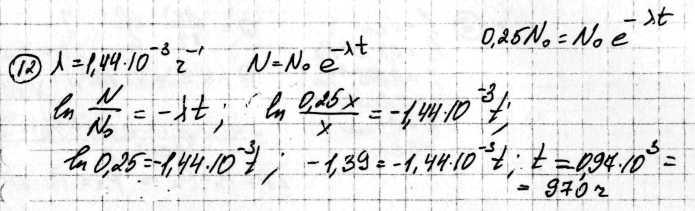 0,25N₀ = N₀ e^(-λt)
(12) λ = 1,44·10⁻³ ч⁻¹ N = N₀ e^(-λt)
ln N/N₀ = -λt; ln 0,25x/x = -1,44·10⁻³ t;
ln 0,25 = -1,44·10⁻³ t; -1,39 = -1,44·10⁻³ t; t = 0,97·10³ =
= 970 ч